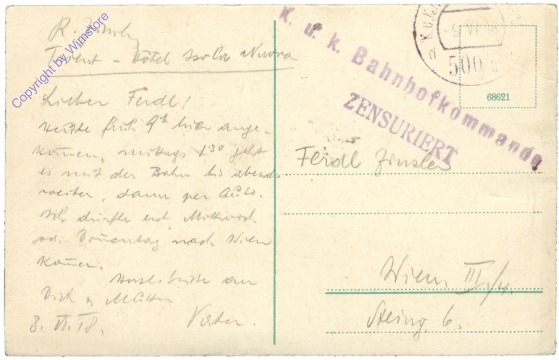 Trient - Hôtel Isola Nuova
Lieber Ferdl!
Heute früh 9h hier ange-
kommen, mittags 1 30 geht
es mit der Bahn bis abends
weiter, dann per Auto.
Ich dürfte erst Mittwoch
od. Donnerstag nach Wien
kommen.
an
Dich u Mutter
Vater.
8. VI. 18.
K.u.K.
500
68621
K. u. k. Bahnhofkommando
ZENSURIERT
Ferdl Zinsler
Wien III/4.
Steing 6.
Copyright by Wimstore